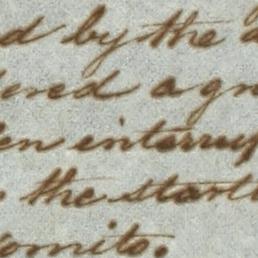 d by the a
ered a gr
en interrup
the start
omito.